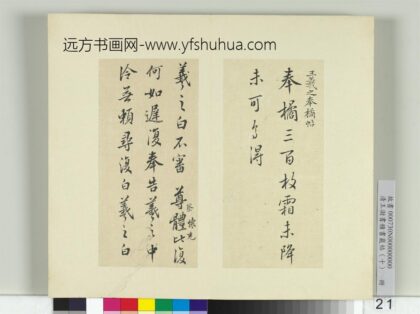 远方书画网-www.yfshuhua.com
王羲之奉橘帖
奉橘三百枚霜未降
未可多得
羲之白不審尊體比復
察 懷充
何如遲復奉告羲之中
冷無賴尋復白羲之白
21